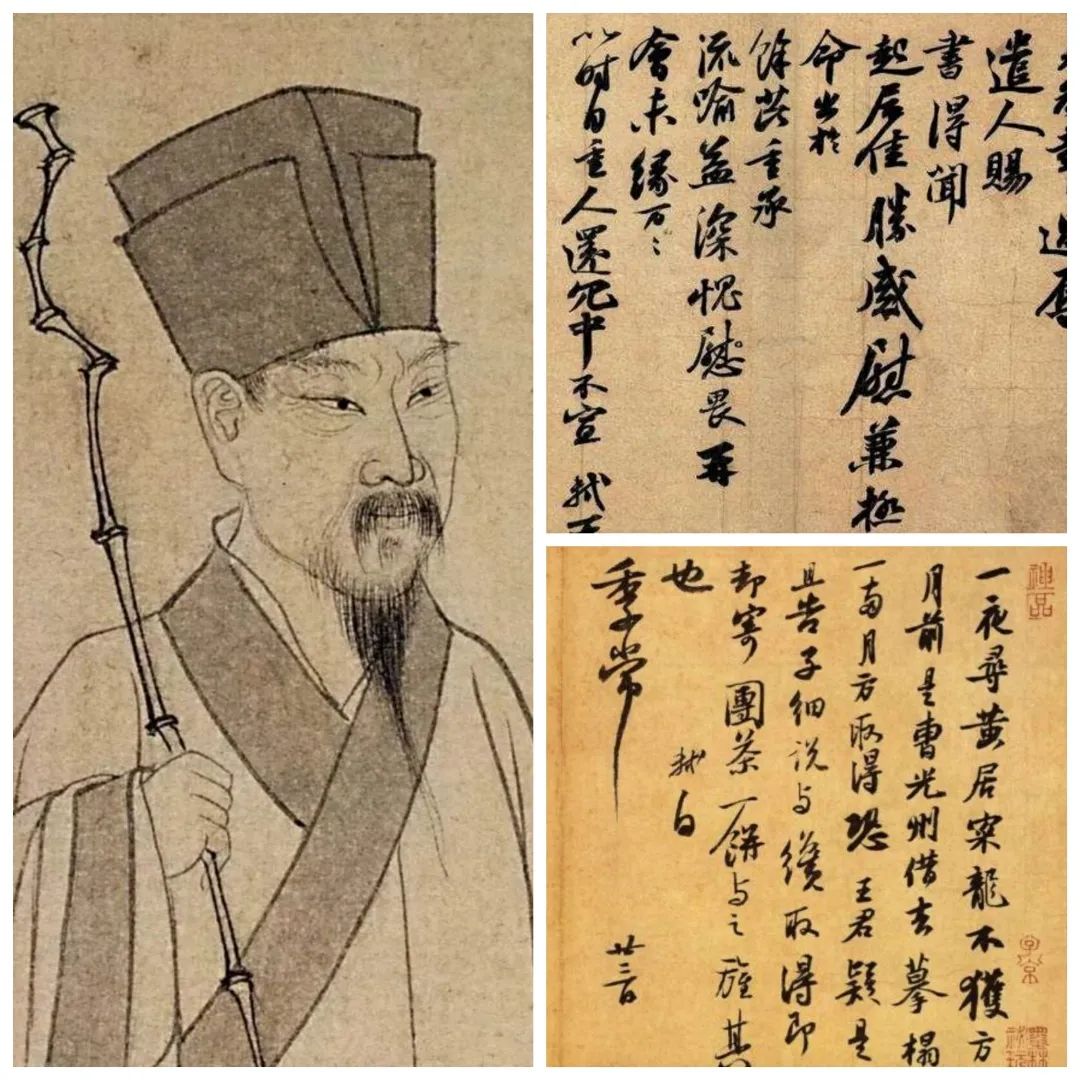 過辱
遣人賜
書得聞
起居佳勝感慰兼極
命出於
餘芘重承
流喻益深愧慰畏再
會未緣万〻
以時自重人還冗中不宣 軾
神品
一夜尋黃居寀龍不獲方
月前是曹光州借去摹榻
一兩月方取得恐王君疑是
且告子細說与纔取得即
却寄團茶一餅与之旌其
也 軾白
季常
廿三日
子京